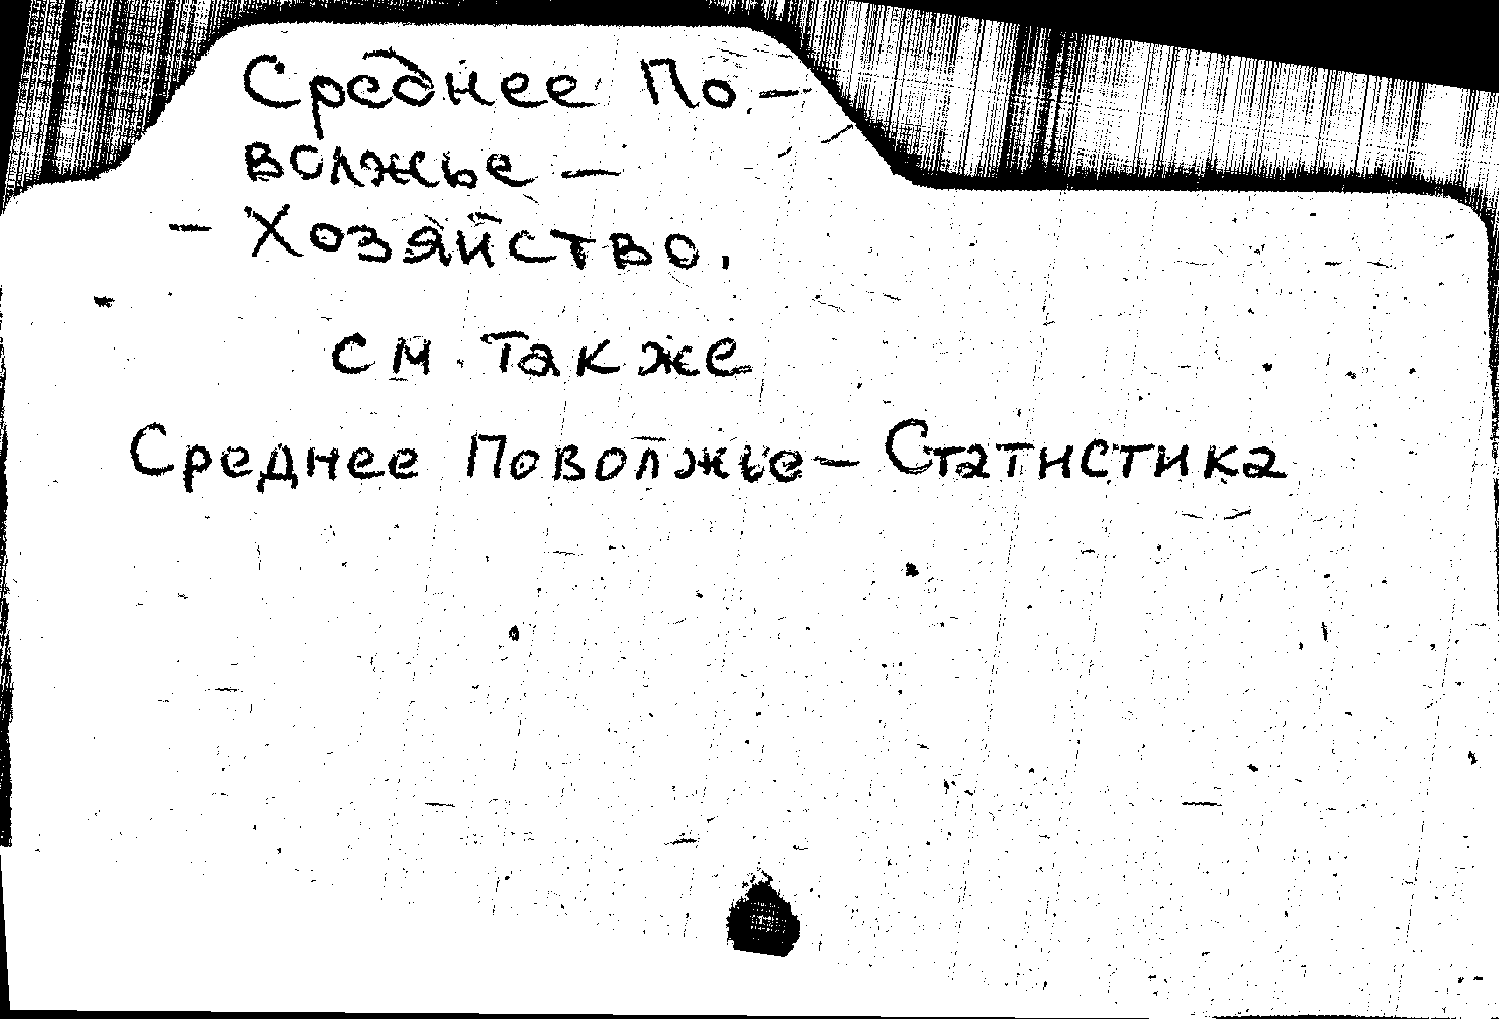 Среднее По-
волжье —
- Хозяйство.
см. также
Среднее Поволжье — Статистика